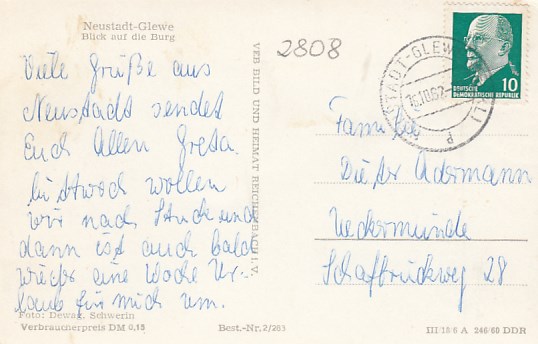 Neustadt-Glewe
Blick auf die Burg
Viele Grüße aus
Neustadt sendet
Euch Allen Greta.
wollen
wir nach
dann ist auch bald
wieder eine Woche Ur-
laub für mich um.
Foto: Dewag, Schwerin
Verbraucherpreis DM 0,13
Best.-Nr. 2/263
VEB BILD UND HEIMAT REICHENBACH I. V.
2808
10
DEUTSCHE
DEMOKRATISCHE REPUBLIK
Familie
Dieter Ackermann
Ueckermünde
Schafbrückweg 28
III/18/6 A 246/60 DDR